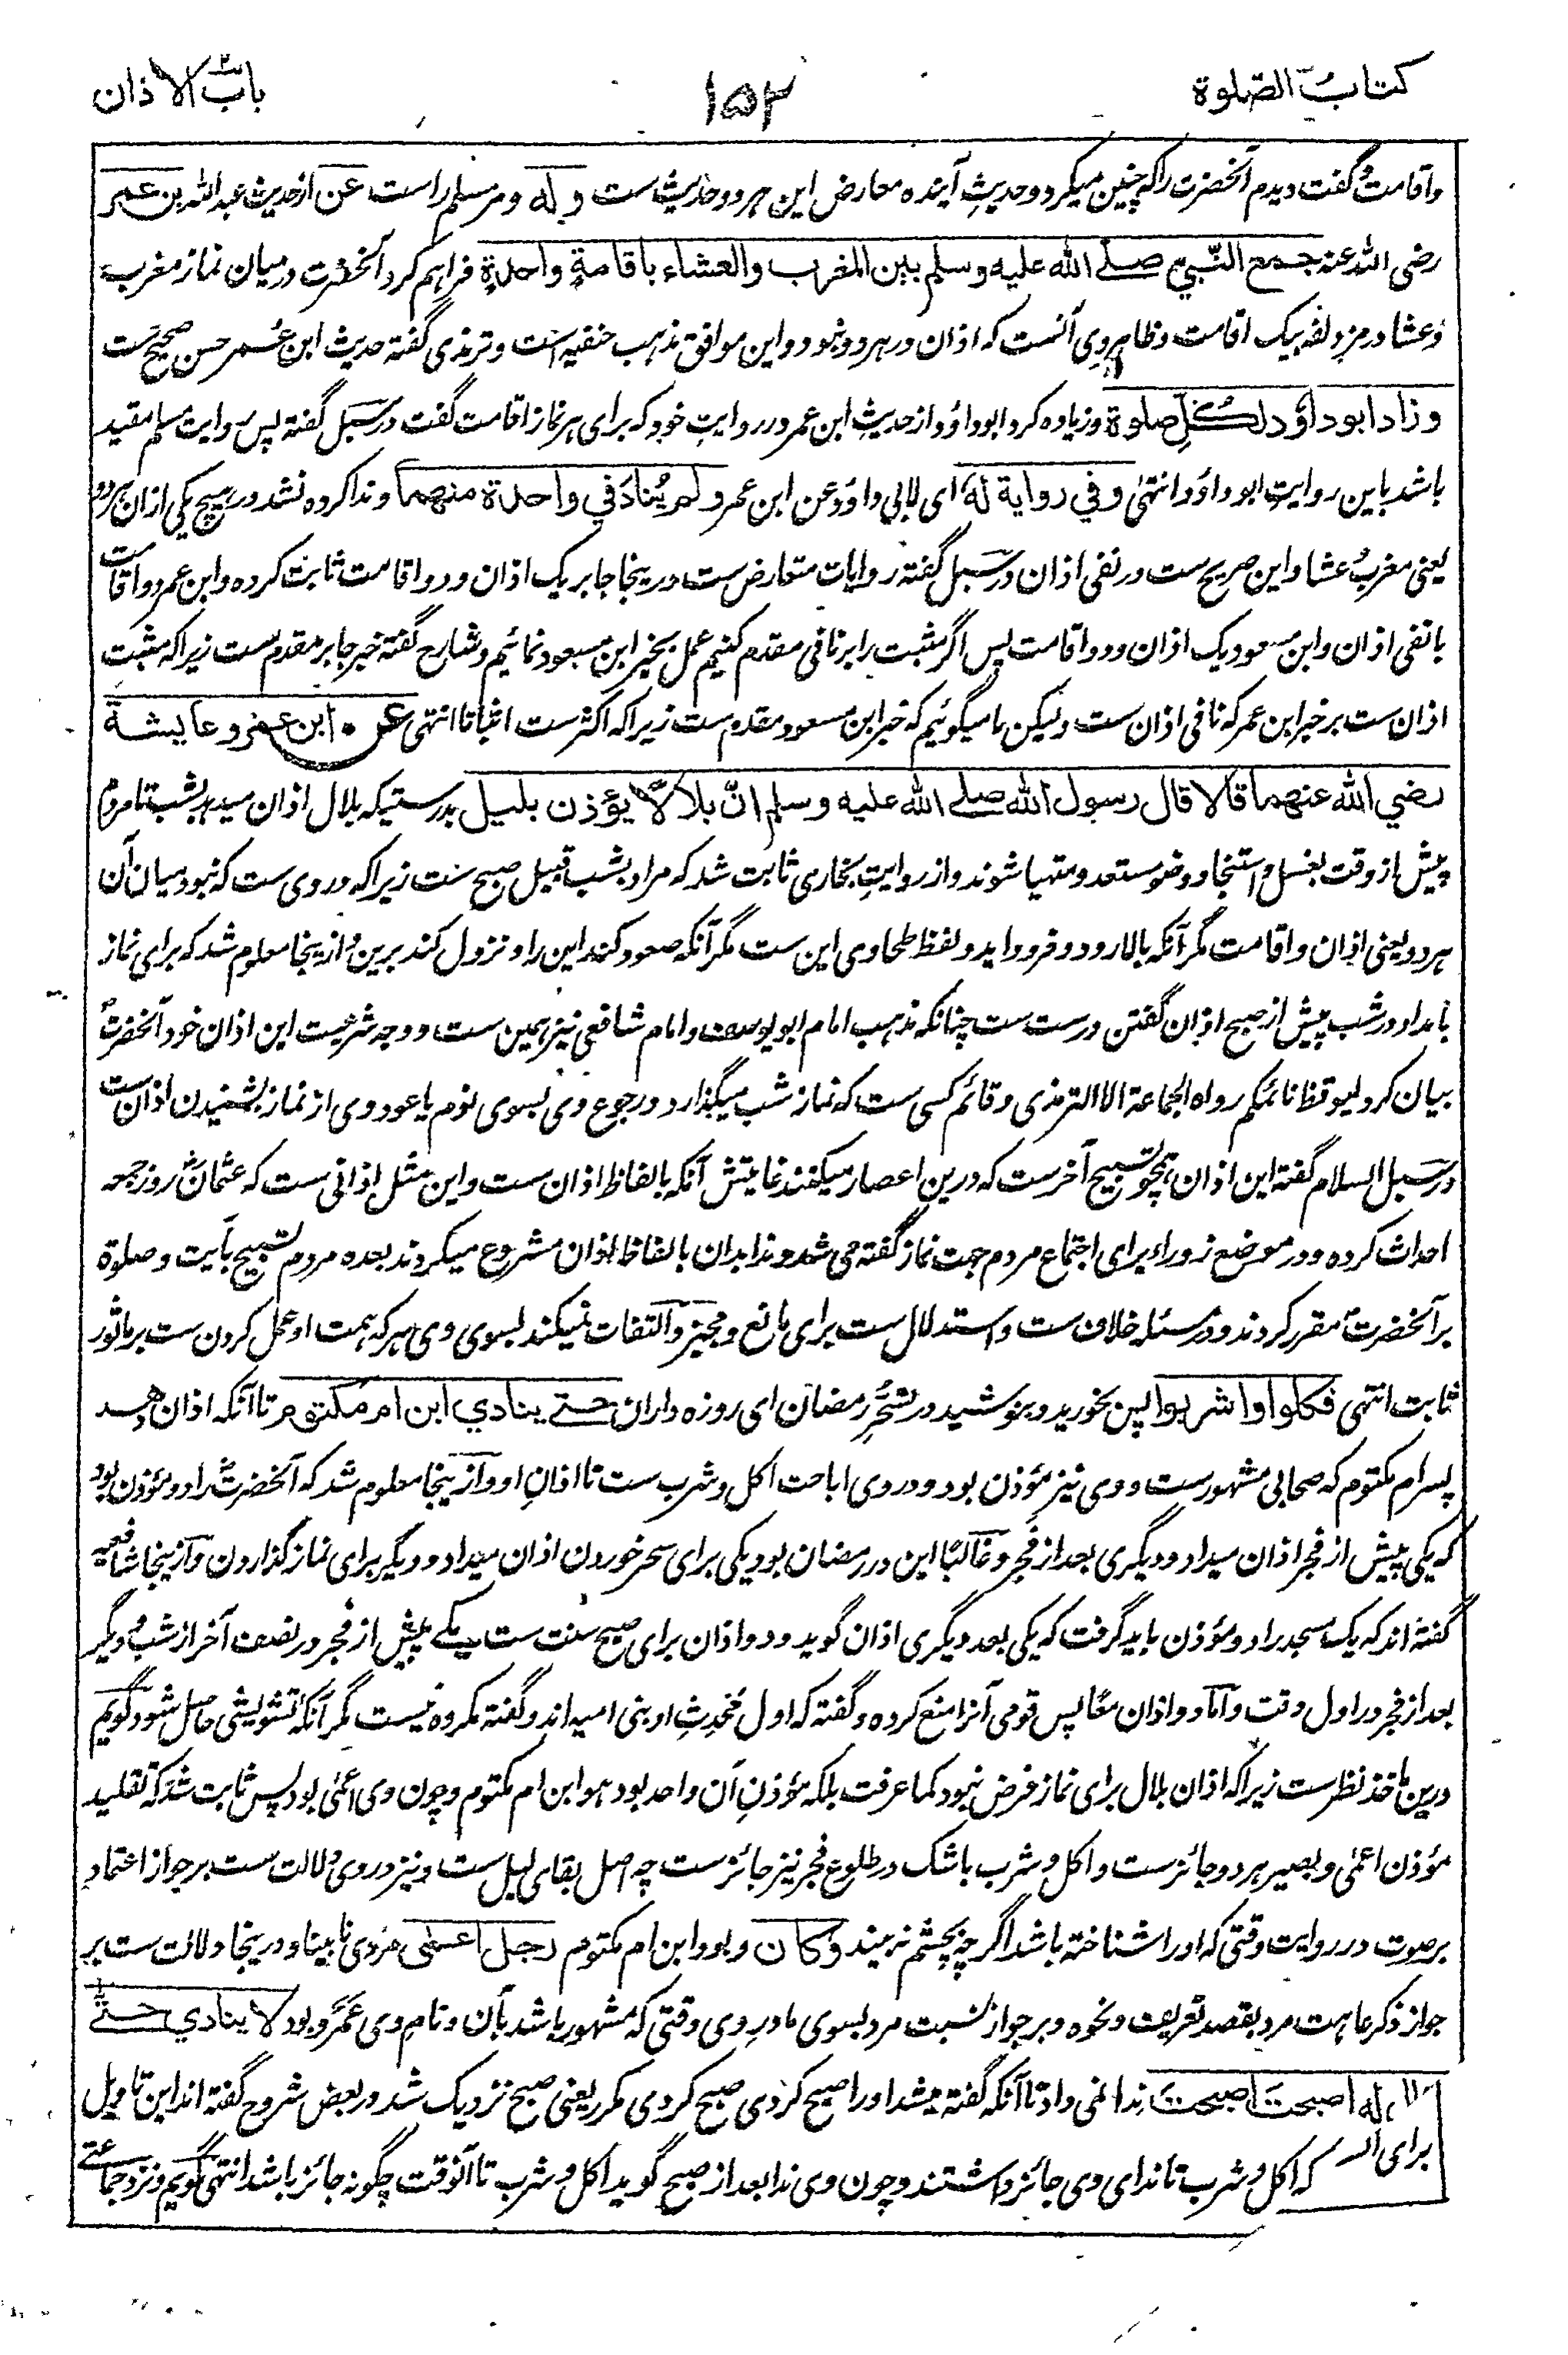 کتاب الصلوة ۱۵۲ باب الاذان
واقامت گفت دیدم آنحضرت را که چنین میکرد و حدیث آینده معارض این هر دو حدیث ست وله ومر مسلم راست عن از حدیث عبدالله بن عمر
رضی الله عنه جمع النبي صلے الله علیه وسلم بین المغرب والعشاء باقامةٍ واحدةٍ فراهم کرد آنحضرت درمیان نماز مغرب
وعشا در مزدلفه بیک اقامت وظاهر وی آنست که اذان در هر دو نبود و این موافق مذهب حنفیه است و ترمذی گفته حدیث ابن عمر حسن صحیح ست
وزاد ابوداؤد لکلِ صلوة وزیاده کرد ابوداؤد از حدیث ابن عمر در روایت خود که برای هر نماز اقامت گفت در سبل گفته پس روایت مسلم مقید
باشد باین روایت ابوداؤد انتهیٰ وفي روایة له ای لابی داؤد عن ابن عمر ولم یُنادَ في واحدة منهما وندا کرده نشد در هیچ یکی ازان هر دو
یعنی مغرب و عشا واین صریح ست در نفی اذان و در سبل گفته روایات متعارض ست درینجا جابر یک اذان و دو اقامت ثابت کرده و ابن عمر دو اقامت
با نفی اذان و ابن مسعود یک اذان و دو اقامت پس اگر مثبت را بر نافی مقدم کنیم عمل بخبر ابن مسعود نمائیم و شارح گفته خبر جابر مقدم ست زیرا که مثبت
اذان ست بر خبر ابن عمر که نافی اذان ست ولیکن ما میگوئیم که خبر ابن مسعود مقدم ست زیرا که اکثر ست اثباتا انتهی عن ابن عمر و عایشة
رضي الله عنهما قالا قال رسول الله صلے الله علیه وسلم انّ بلالًا یؤذن بلیل بدرستیکه بلال اذان میدهد بشب تا مردم
پیش از وقت بغسل و استنجا و وضو مستعد و متهیا شوند و از روایت بخاری ثابت شد که مراد بشب قبیل صبح ست زیرا که در وی ست که نبود میان آن
هر دو یعنی اذان و اقامت مگر آنکه بالا رود و فرود آید و لفظ طحاوی این ست مگر آنکه صعود کند این را و نزول کند برین و ازینجا معلوم شد که برای نماز
بامداد در شب پیش از صبح اذان گفتن درست ست چنانکه مذهب امام ابویوسف و امام شافعی نیز همین ست و وجه شرعیت این اذان خود آنحضرت
بیان کرد لیوقظ نائمکم رواه الجماعة الا الترمذی و قائم کسی ست که نماز شب میگذارد و رجوع وی بسوی نوم یا عود وی از نماز بشنیدن اذان ست
در سبل السلام گفته این اذان همچو تسبیح آخر ست که درین اعصار میکنند غایتش آنکه بالفاظ اذان ست و این مثل اذانی ست که عثمان روز جمعه
احداث کرده و در موضع زوراء برای اجتماع مردم جهت نماز گفته می شد و ندا بدان بالفاظ اذان مشروع میکردند بعده مردم تسبیح بآیت و صلوة
بر آنحضرت مقرر کردند و در مسئله خلاف ست و استدلال ست برای مانع و مجیز و التفات نمیکند بسوی وی هر که همت او عمل کردن ست بر ماثور
ثابت انتهی فکلوا واشربوا پس بخورید و بنوشید در تسحر رمضان ای روزه داران حتے ینادي ابن ام مکتوم تا آنکه اذان دهد
پسر ام مکتوم که صحابی مشهور ست و وی نیز مؤذن بود و در وی اباحت اکل و شرب ست تا اذان او و ازینجا معلوم شد که آنحضرت را دو مؤذن بود
که یکی پیش از فجر اذان میداد و دیگری بعد از فجر و غالبًا این در رمضان بود یکی برای سحر خوردن اذان میداد و دیگر برای نماز گذاردن و ازینجا شافعیه
گفته اند که یک مسجد را دو مؤذن باید گرفت که یکی بعد دیگری اذان گوید و دو اذان برای صبح سنت ست یکے پیش از فجر در نصف آخر از شب و دیگر
بعد از فجر در اول وقت و اما دو اذان معًا پس قومی آنرا منع کرده و گفته که اول محدث او بنی امیه اند و گفته مکروه نیست مگر آنکه تشویشی حاصل شود گویم
درین ماخذ نظر ست زیرا که اذان بلال برای نماز فرض نبود کما عرفت بلکه مؤذن آن واحد بود هو ابن ام مکتوم و چون وی اعمیٰ بود پس ثابت شد که تقلید
مؤذن اعمیٰ و بصیر هر دو جائز ست و اکل و شرب باشک در طلوع فجر نیز جائز ست چه اصل بقای لیل ست و نیز در وی دلالت ست بر جواز اعتماد
بر صوت در روایت وقتی که او را شناخته باشد اگر چه بچشم نه بیند وکان و بود ابن ام مکتوم رجل اعمی مردی نابینا و درینجا دلالت ست بر
جواز ذکر عاهت مرد بقصد تعریف و نحوه و بر جواز نسبت مرد بسوی مادر وی وقتی که مشهور باشد بآن و نام وی عمرو بود لا ینادي حتے
له اصبحتَ اصبحتَ ندا نمی داد تا آنکه گفته میشد او را صبح کردی صبح کردی مکرر یعنی صبح نزدیک شد و در بعض شروح گفته اند این تاویل
برای که اکل و شرب تا ندای وی جائز داشتند و چون وی ندا بعد از صبح گوید اکل و شرب تا آنوقت چگونه جائز باشد انتهی گویم و نزد جماعتے